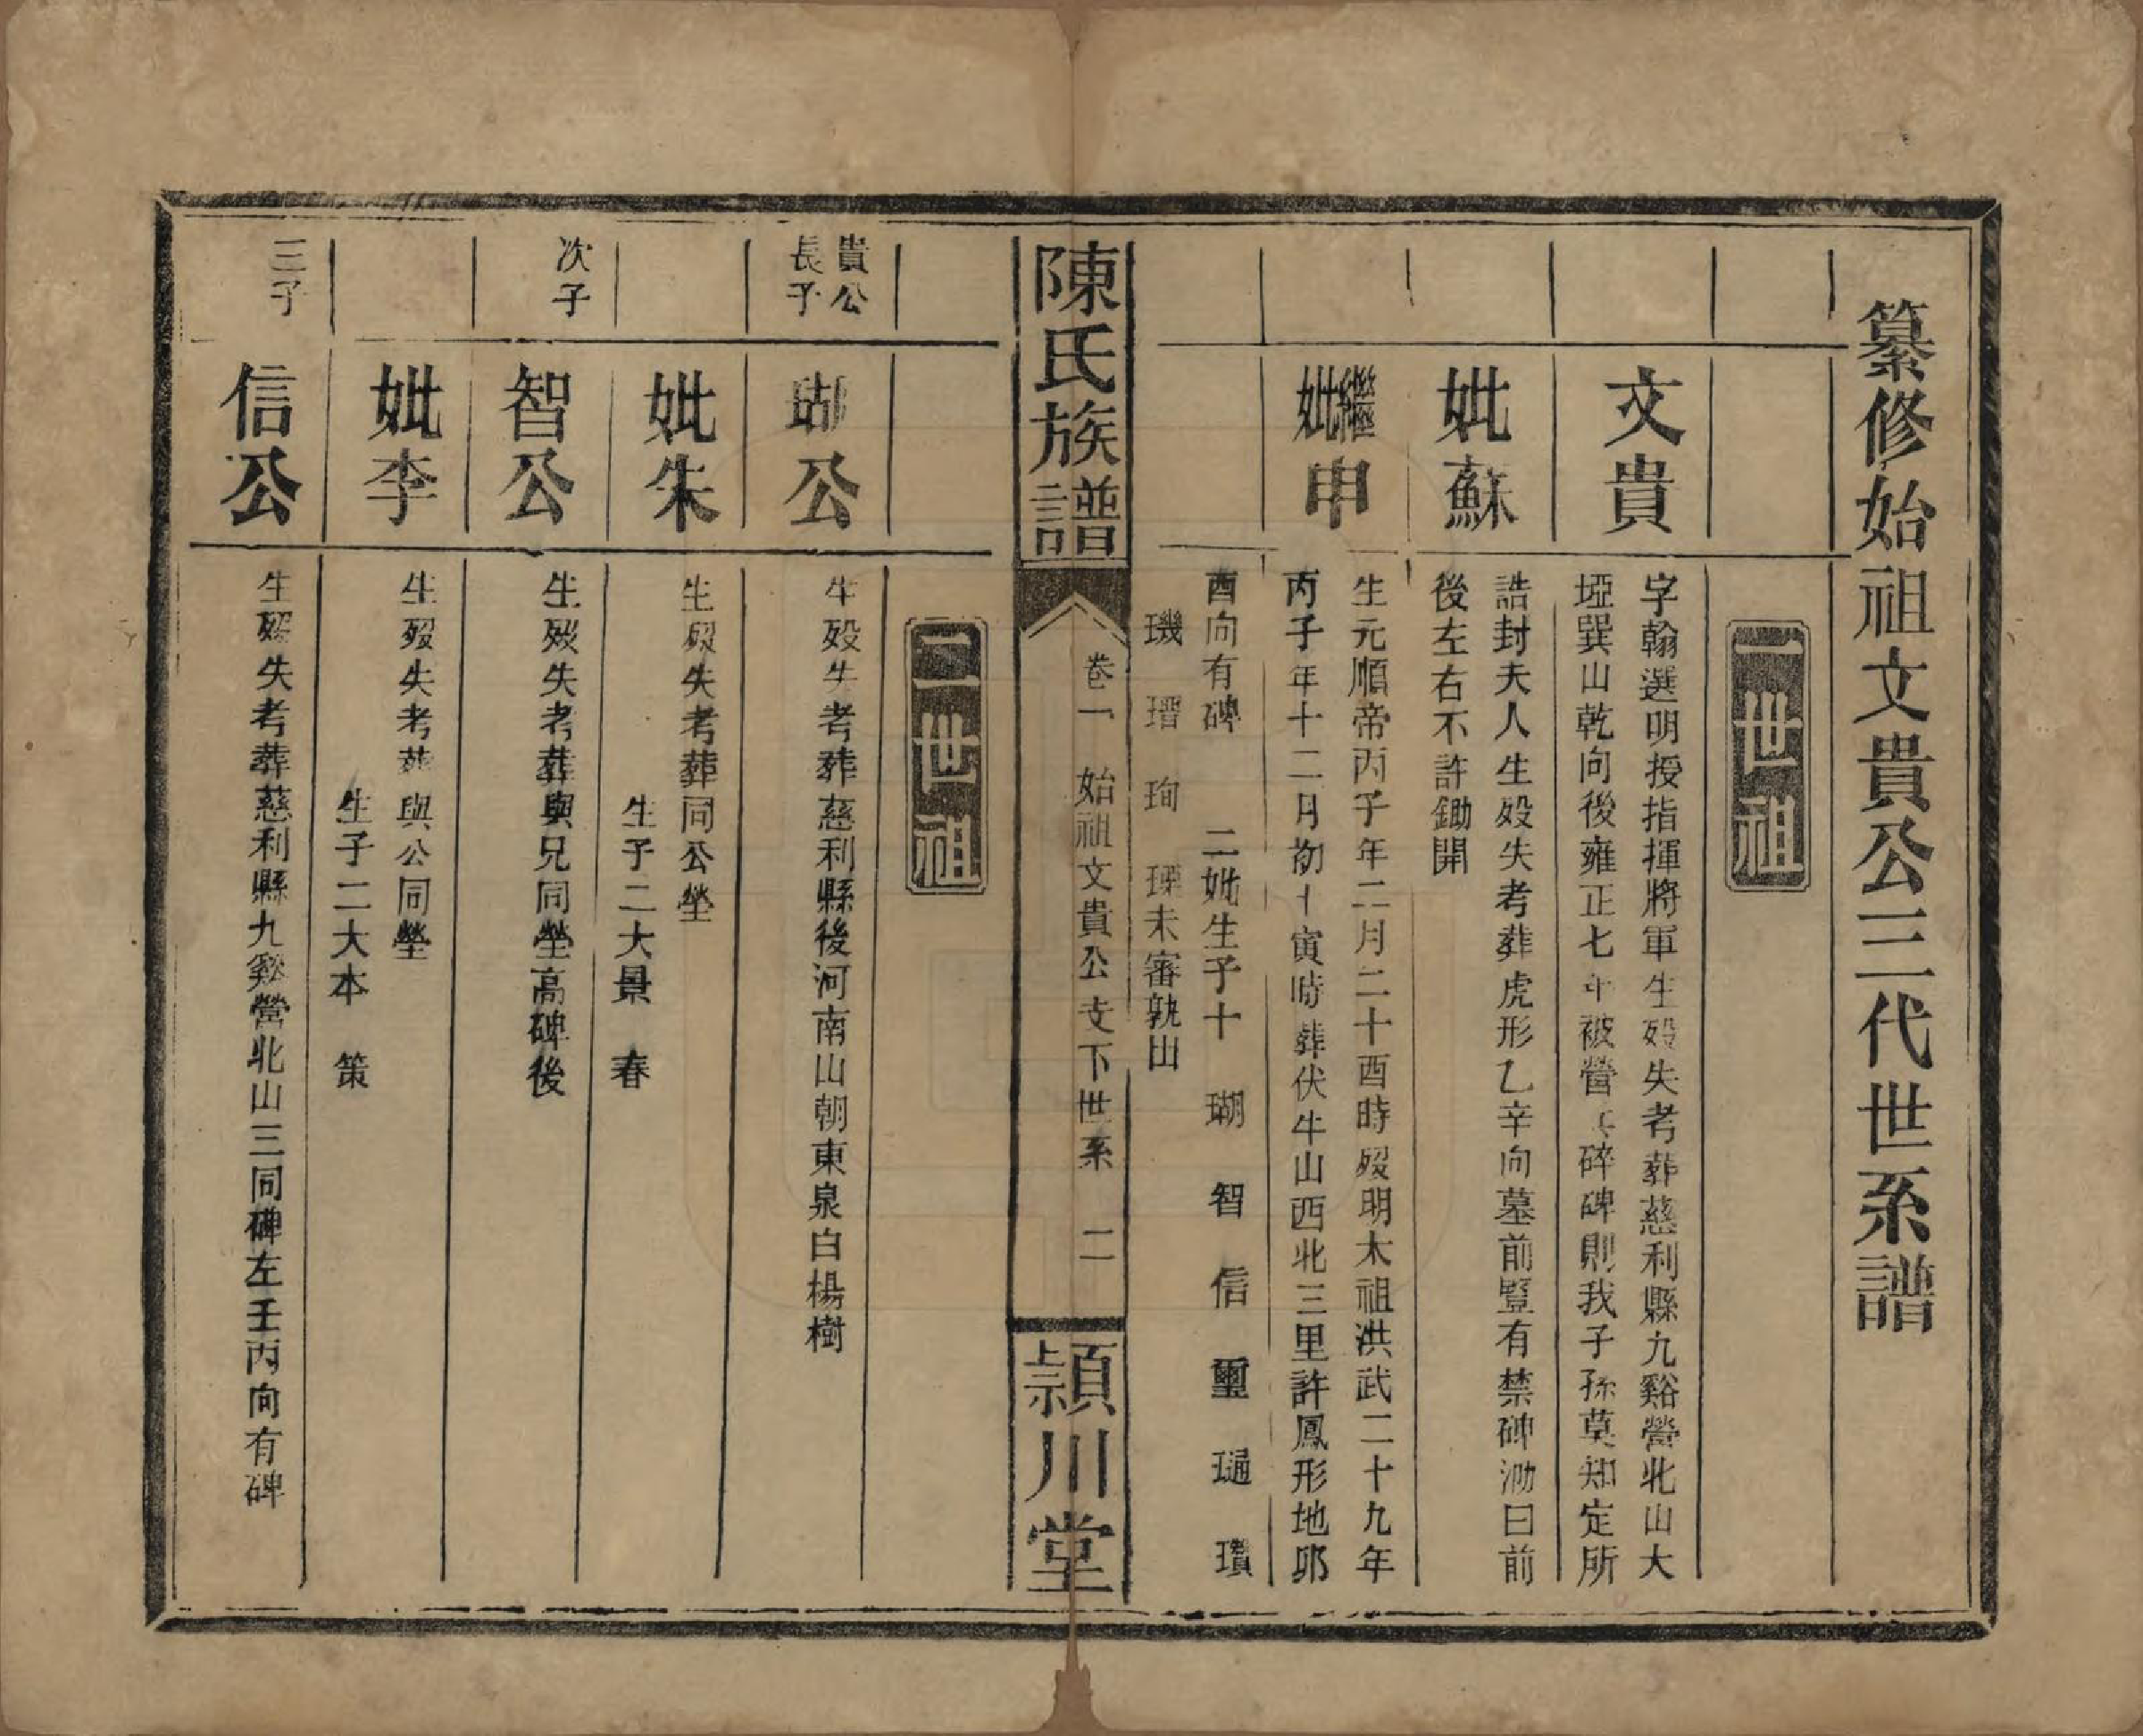 纂修始祖文貴公三代世系譜
一世祖
文貴
字翰選明授指揮將軍生歿失考葬慈利縣九谿營北山大
埡巽山乾向後雍正七年被營兵碎碑則我子孫莫知定所
妣蘇
誥封夫人生歿失考葬虎形乙辛向墓前豎有禁碑泐曰前
後左右不許鋤開
繼妣申
生元順帝丙子年二月二十酉時歿明太祖洪武二十九年
丙子年十二月初十寅時葬伏牛山西北三里許鳳形地卯
酉向有碑 二妣生子十 瑚 智 信 璽 璉 瓚
璣 瑨 珣 瑮未審孰出
陳氏族譜
卷一 始祖文貴公支下世系 二
潁川堂
二世祖
貴公
長子
瑚公
生歿失考葬慈利縣後河南山朝東泉白楊樹
妣朱
生歿失考葬同公塋
生子二大景 春
次子
智公
生歿失考葬與兄同塋高碑後
妣李
生歿失考葬與公同塋
生子二大本 策
三子
信公
生歿失考葬慈利縣九谿營北山三同碑左壬丙向有碑